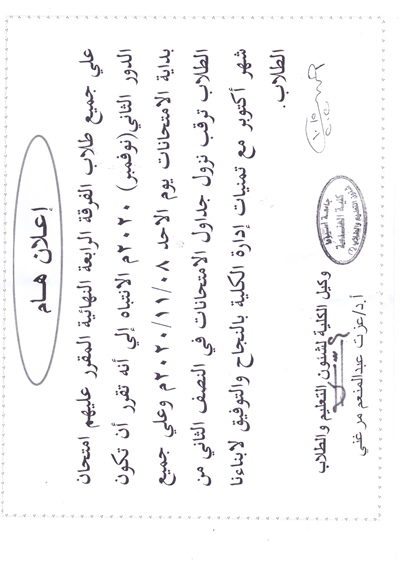 إعلان هام
علي جميع طلاب الفرقة الرابعة النهائية المقرر عليهم امتحان
الدور الثاني(نوفمبر) ٢٠٢٠م الانتباه إلي أنه تقرر أن تكون
بداية الامتحانات يوم الاحد ٢٠٢٠/١١/٠٨م وعلي جميع
الطلاب ترقب نزول جداول الامتحانات في النصف الثاني من
شهر أكتوبر مع تمنيات إدارة الكلية بالنجاح والتوفيق لابناءنا
الطلاب.
وكيل الكلية لشئون التعليم والطلاب
أ.د/عزت عبدالمنعم مرغني
جامعة أسيوط
كلية الهندسة